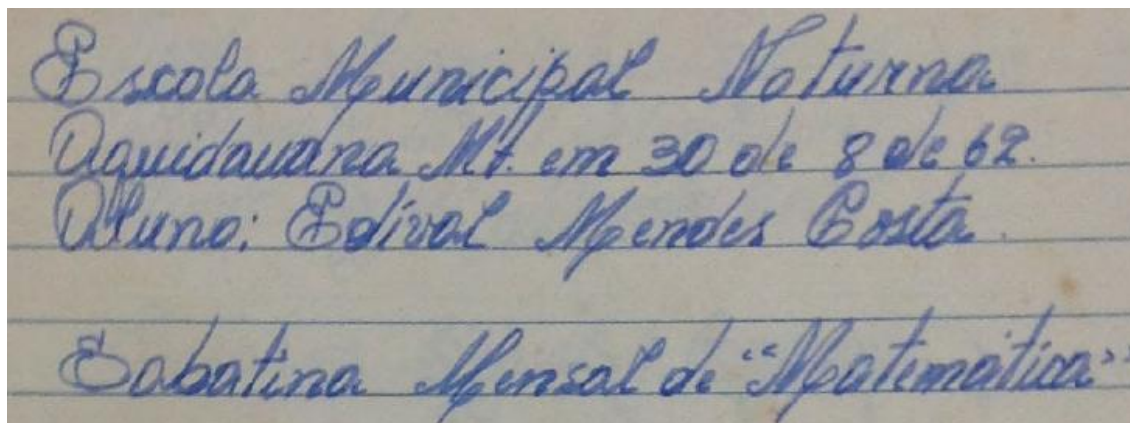 Escola Municipal Noturna
Aquidauana Mt. em 30 de 8 de 62.
Aluno: Edival Mendes Costa.
Sabatina Mensal de "Matemática"